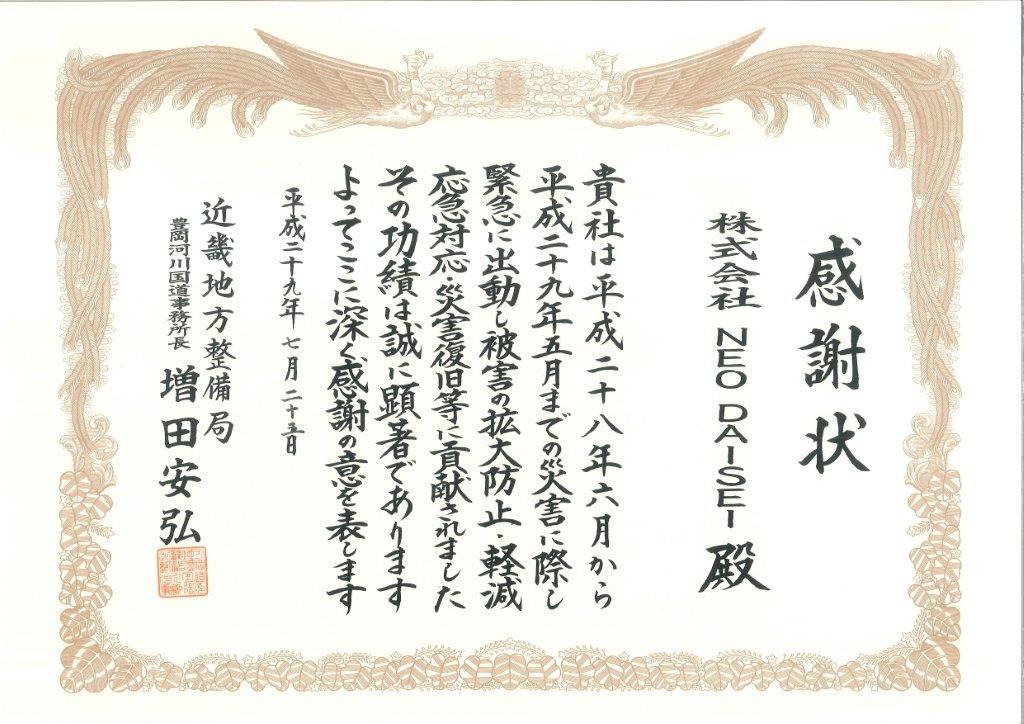 感謝状
株式会社 NEO DAISEI 殿
貴社は平成二十八年六月から
平成二十九年五月までの災害に際し
緊急に出動し被害の拡大防止・軽減
応急対応 災害復旧等に貢献されました
その功績は誠に顕著であります
よってここに深く感謝の意を表します
平成二十九年七月二十五日
近畿地方整備局
豊岡河川国道事務所長
増田安弘